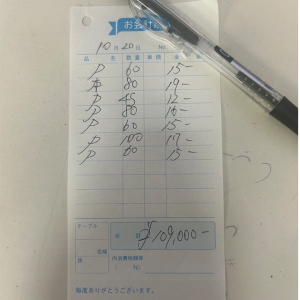 お会計票
10月20日 No.
品名 数量 単価 金額
P 60 15-
本 80 19-
P 45 12-
P 80 16-
P 60 15-
P 100 17-
P 60 15-
テーブル
名様
係
合計 ¥109,000-
内消費税額等
( %)
毎度ありがとうございます。